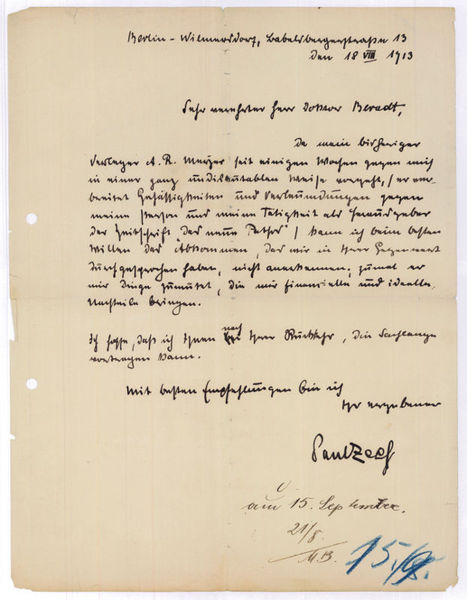 Berlin-Wilmersdorf, Babelsbergerstraße 13
den 18 VIII 1913
Sehr verehrter Herr Doktor Beradt,
Da mein bisheriger
Verleger A. R. Meyer seit einigen Wochen gegen mich
in einer ganz undiskutablen Weise vorgeht, /er ver-
breitet Gehässigkeiten und Verleumdungen gegen
meine Person und meine Tätigkeit als Herausgeber
der Zeitschrift das neue Pathos/ kann ich beim besten
Willen das Abkommen, das wir in Ihrer Gegenwart
durchgesprochen haben, nicht anerkennen; zumal er
mir Dinge zumutet, die mir finanzielle und ideelle
Nachteile bringen.
Ich hoffe, daß ich Ihnen nach Ihrer Rückkehr, die Sachlage
vortragen kann.
Mit besten Empfehlungen bin ich
Ihr ergebener
Paul Zech
am 15. September.
21/8.
M.B.
15./9.